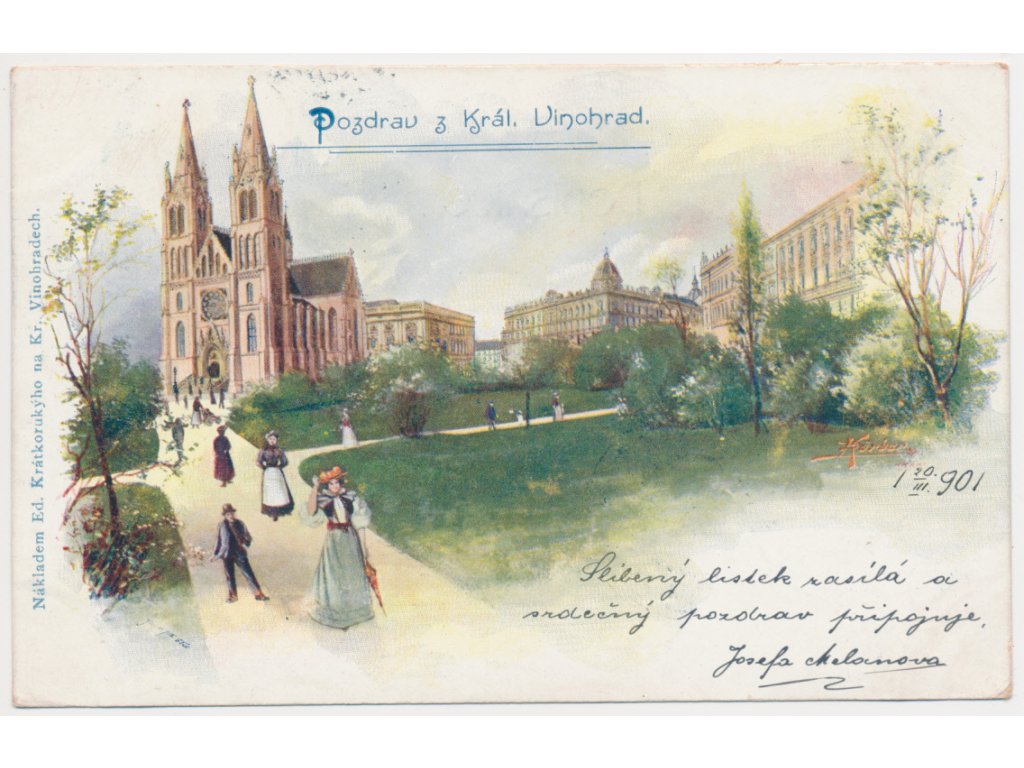 Pozdrav z Král. Vinohrad.
Nákladem Ed. Krátkorukýho na Kr. Vinohradech.
1 20./III. 901
Slíbený lístek zasílá a
srdečný pozdrav připojuje,
Josefa Melanova